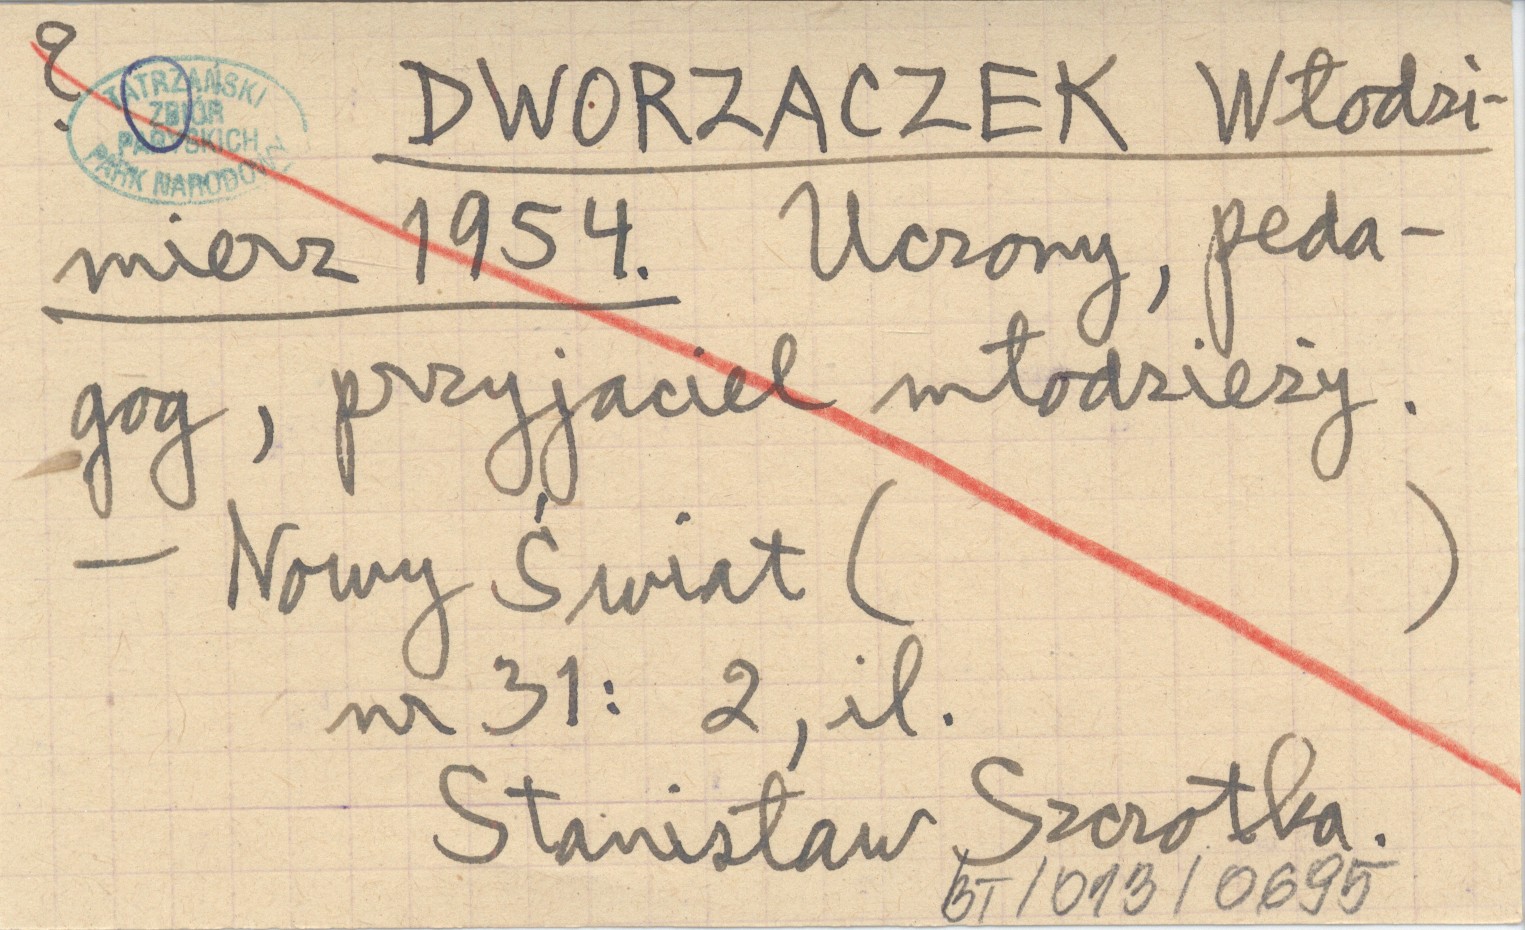 ?
TATRZAŃSKI
ZBIÓR
PARYSKICH
PARK NARODOWY
DWORZACZEK Włodzi-
mierz 1954. Uczony, peda-
gog, przyjaciel młodzieży.
– Nowy Świat ( )
nr 31: 2, il.
Stanisław Szczotka.
BT/013/0695